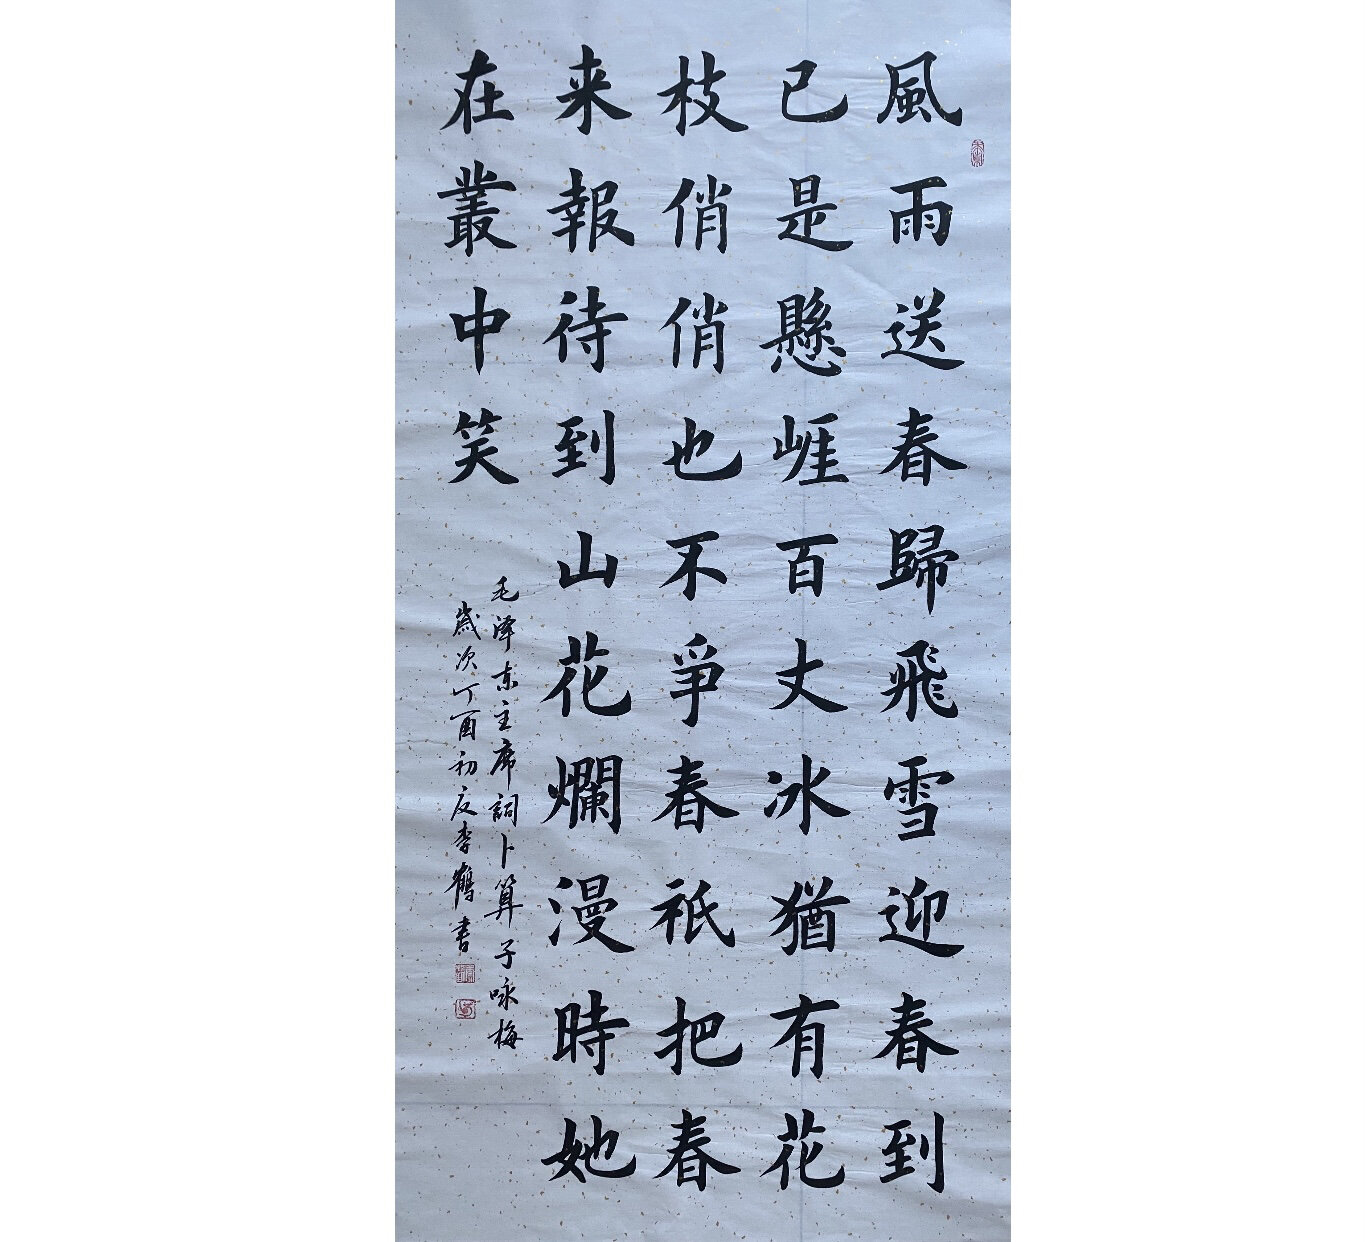 風雨送春歸飛雪迎春到
已是懸崕百丈冰猶有花
枝俏俏也不爭春祇把春
来報待到山花爛漫時她
在叢中笑
毛泽东主席詞卜算子咏梅
歲次丁酉初夏李鶴书